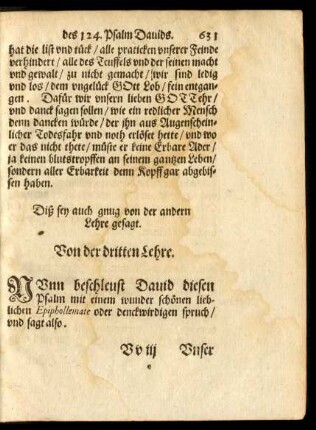 des 124. Psalm Dauids. 631
hat die list vnd tück / alle praticken vnserer Feinde
verhindert / alle des Teuffels vnd der seinen macht
vnd gewalt / zu nicht gemacht / wir sind ledig
vnd los / dem vngelück GOtt Lob / sein entgan-
gen. Dafür wir vnsern lieben GOTT ehr /
vnd danck sagen sollen / wie ein redlicher Mensch
dem dancken würde / der ihn aus Augenschein-
licher Todesfahr vnd noth erlöset hette / vnd wo
er das nicht thete / müste er keine Erbare Ader /
ja keinen blutstropffen an seinem gantzen Leben /
sondern aller Erbarkeit dem Kopff gar abgebis-
sen haben.
Diß sey auch gnug von der andern
Lehre gesagt.
Von der dritten Lehre.
NVnn beschleust Dauid diesen
Psalm mit einem wunder schönen lieb-
lichen Epiphollemate oder denckwirdigen spruch /
vnd sagt also.
Vv iij Vnser